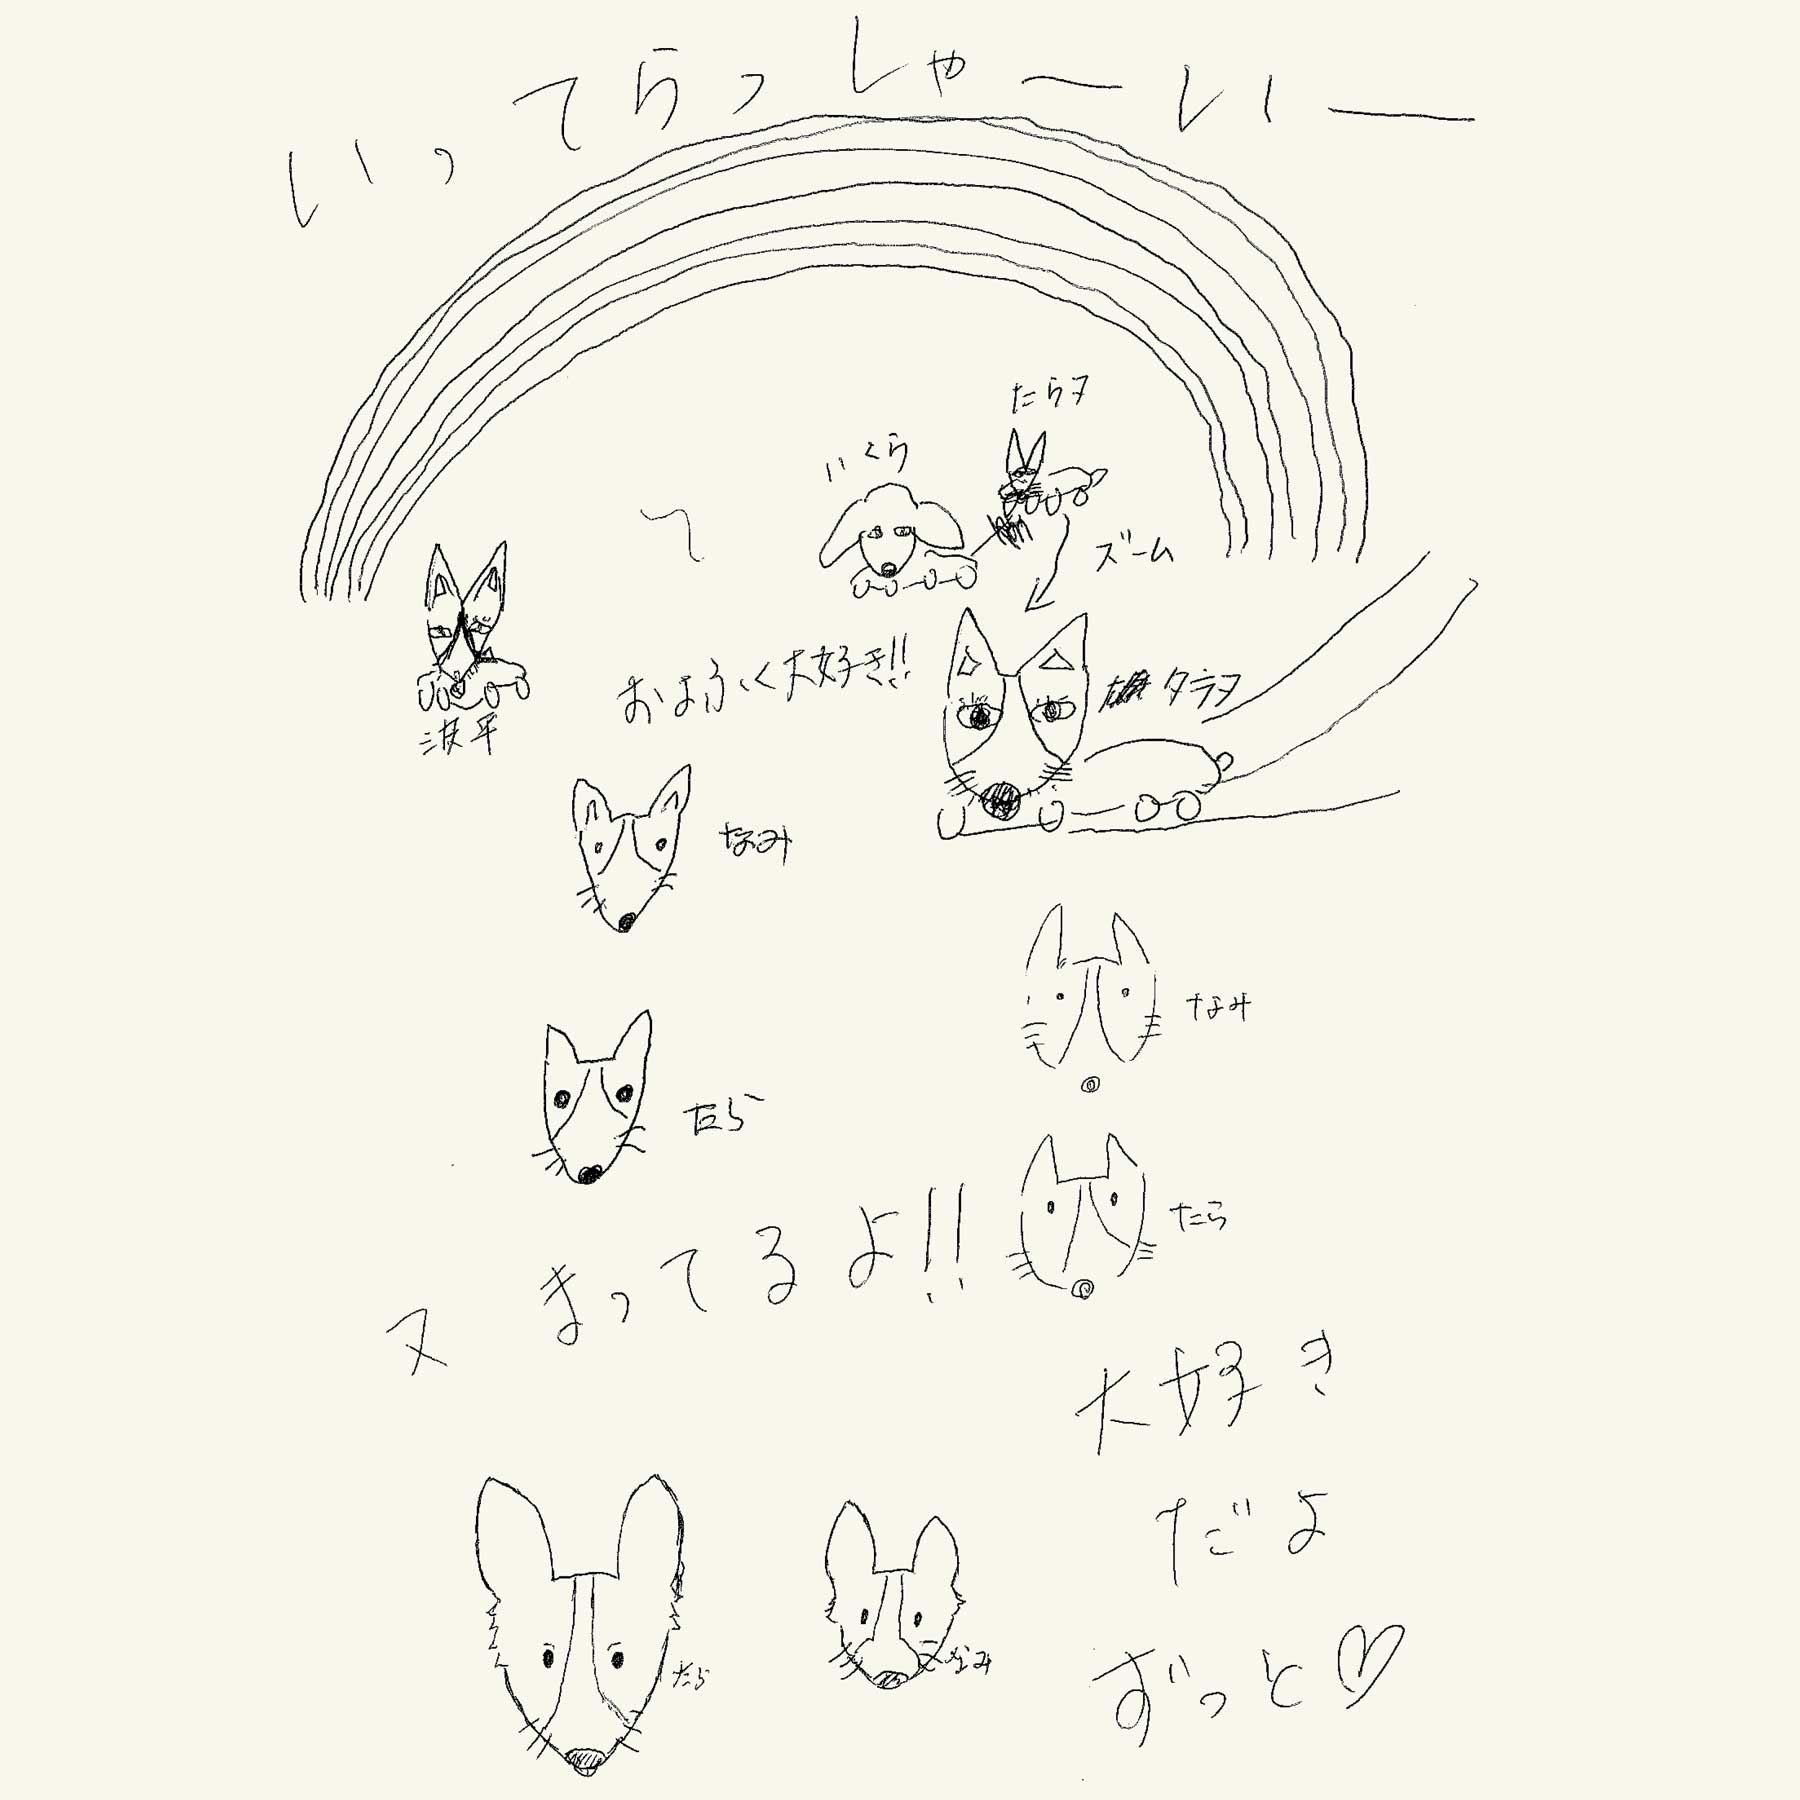 いってらっしゃーいー
たらヌ
いくら
ズーム
おはふく大好き!!
タラヌ
波平
なみ
なみ
たら
たら
ヌ まってるよ!!
大好き
だよ
ずっと♡
たら
なみ